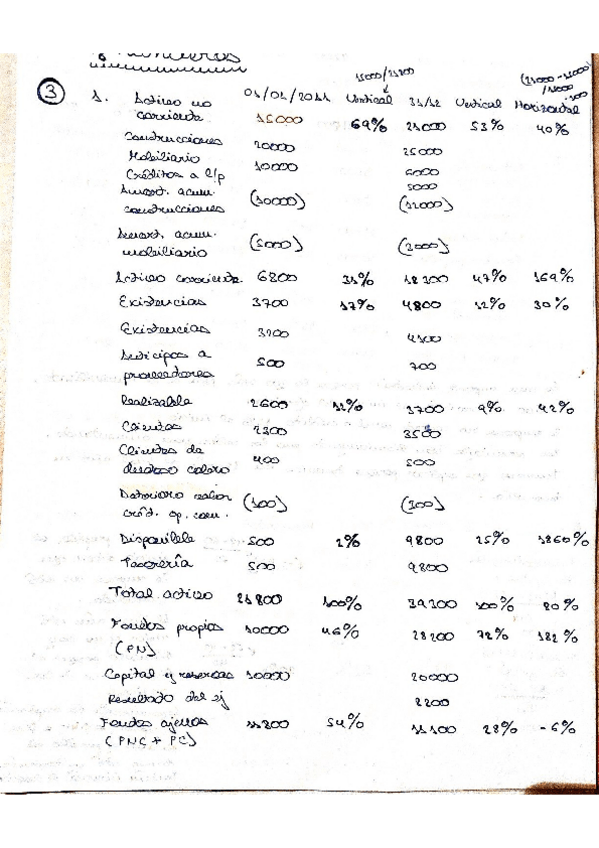 financieros
15000/21800
(21000-15000)
/15000
·100
③
1. Activo no 01/01/2011 Vertical 31/12 Vertical Horizontal
corriente 15000 69% 21000 53% 40%
Construcciones 20000 25000
Mobiliario 10000 6000
Créditos a l/p 5000
Amort. acum. construcciones (10000) (12000)
Amort. acum. mobiliario (5000) (3000)
Activo corriente 6800 31% 18200 47% 169%
Existencias 3700 17% 4800 12% 30%
Existencias 3200 4100
Anticipos a proveedores 500 700
Realizable 2600 12% 3700 9% 42%
Clientes 2300 3500
Clientes de dudoso cobro 400 500
Deterioro valor créd. op. com. (100) (300)
Disponible 500 2% 9800 25% 1860%
Tesorería 500 9800
Total activo 21800 100% 39200 100% 80%
Fondos propios 10000 46% 28200 72% 182%
(PN)
Capital y reservas 10000 20000
Resultado del ej 8200
Fondos ajenos 11800 54% 11100 28% -6%
(PNC + PC)